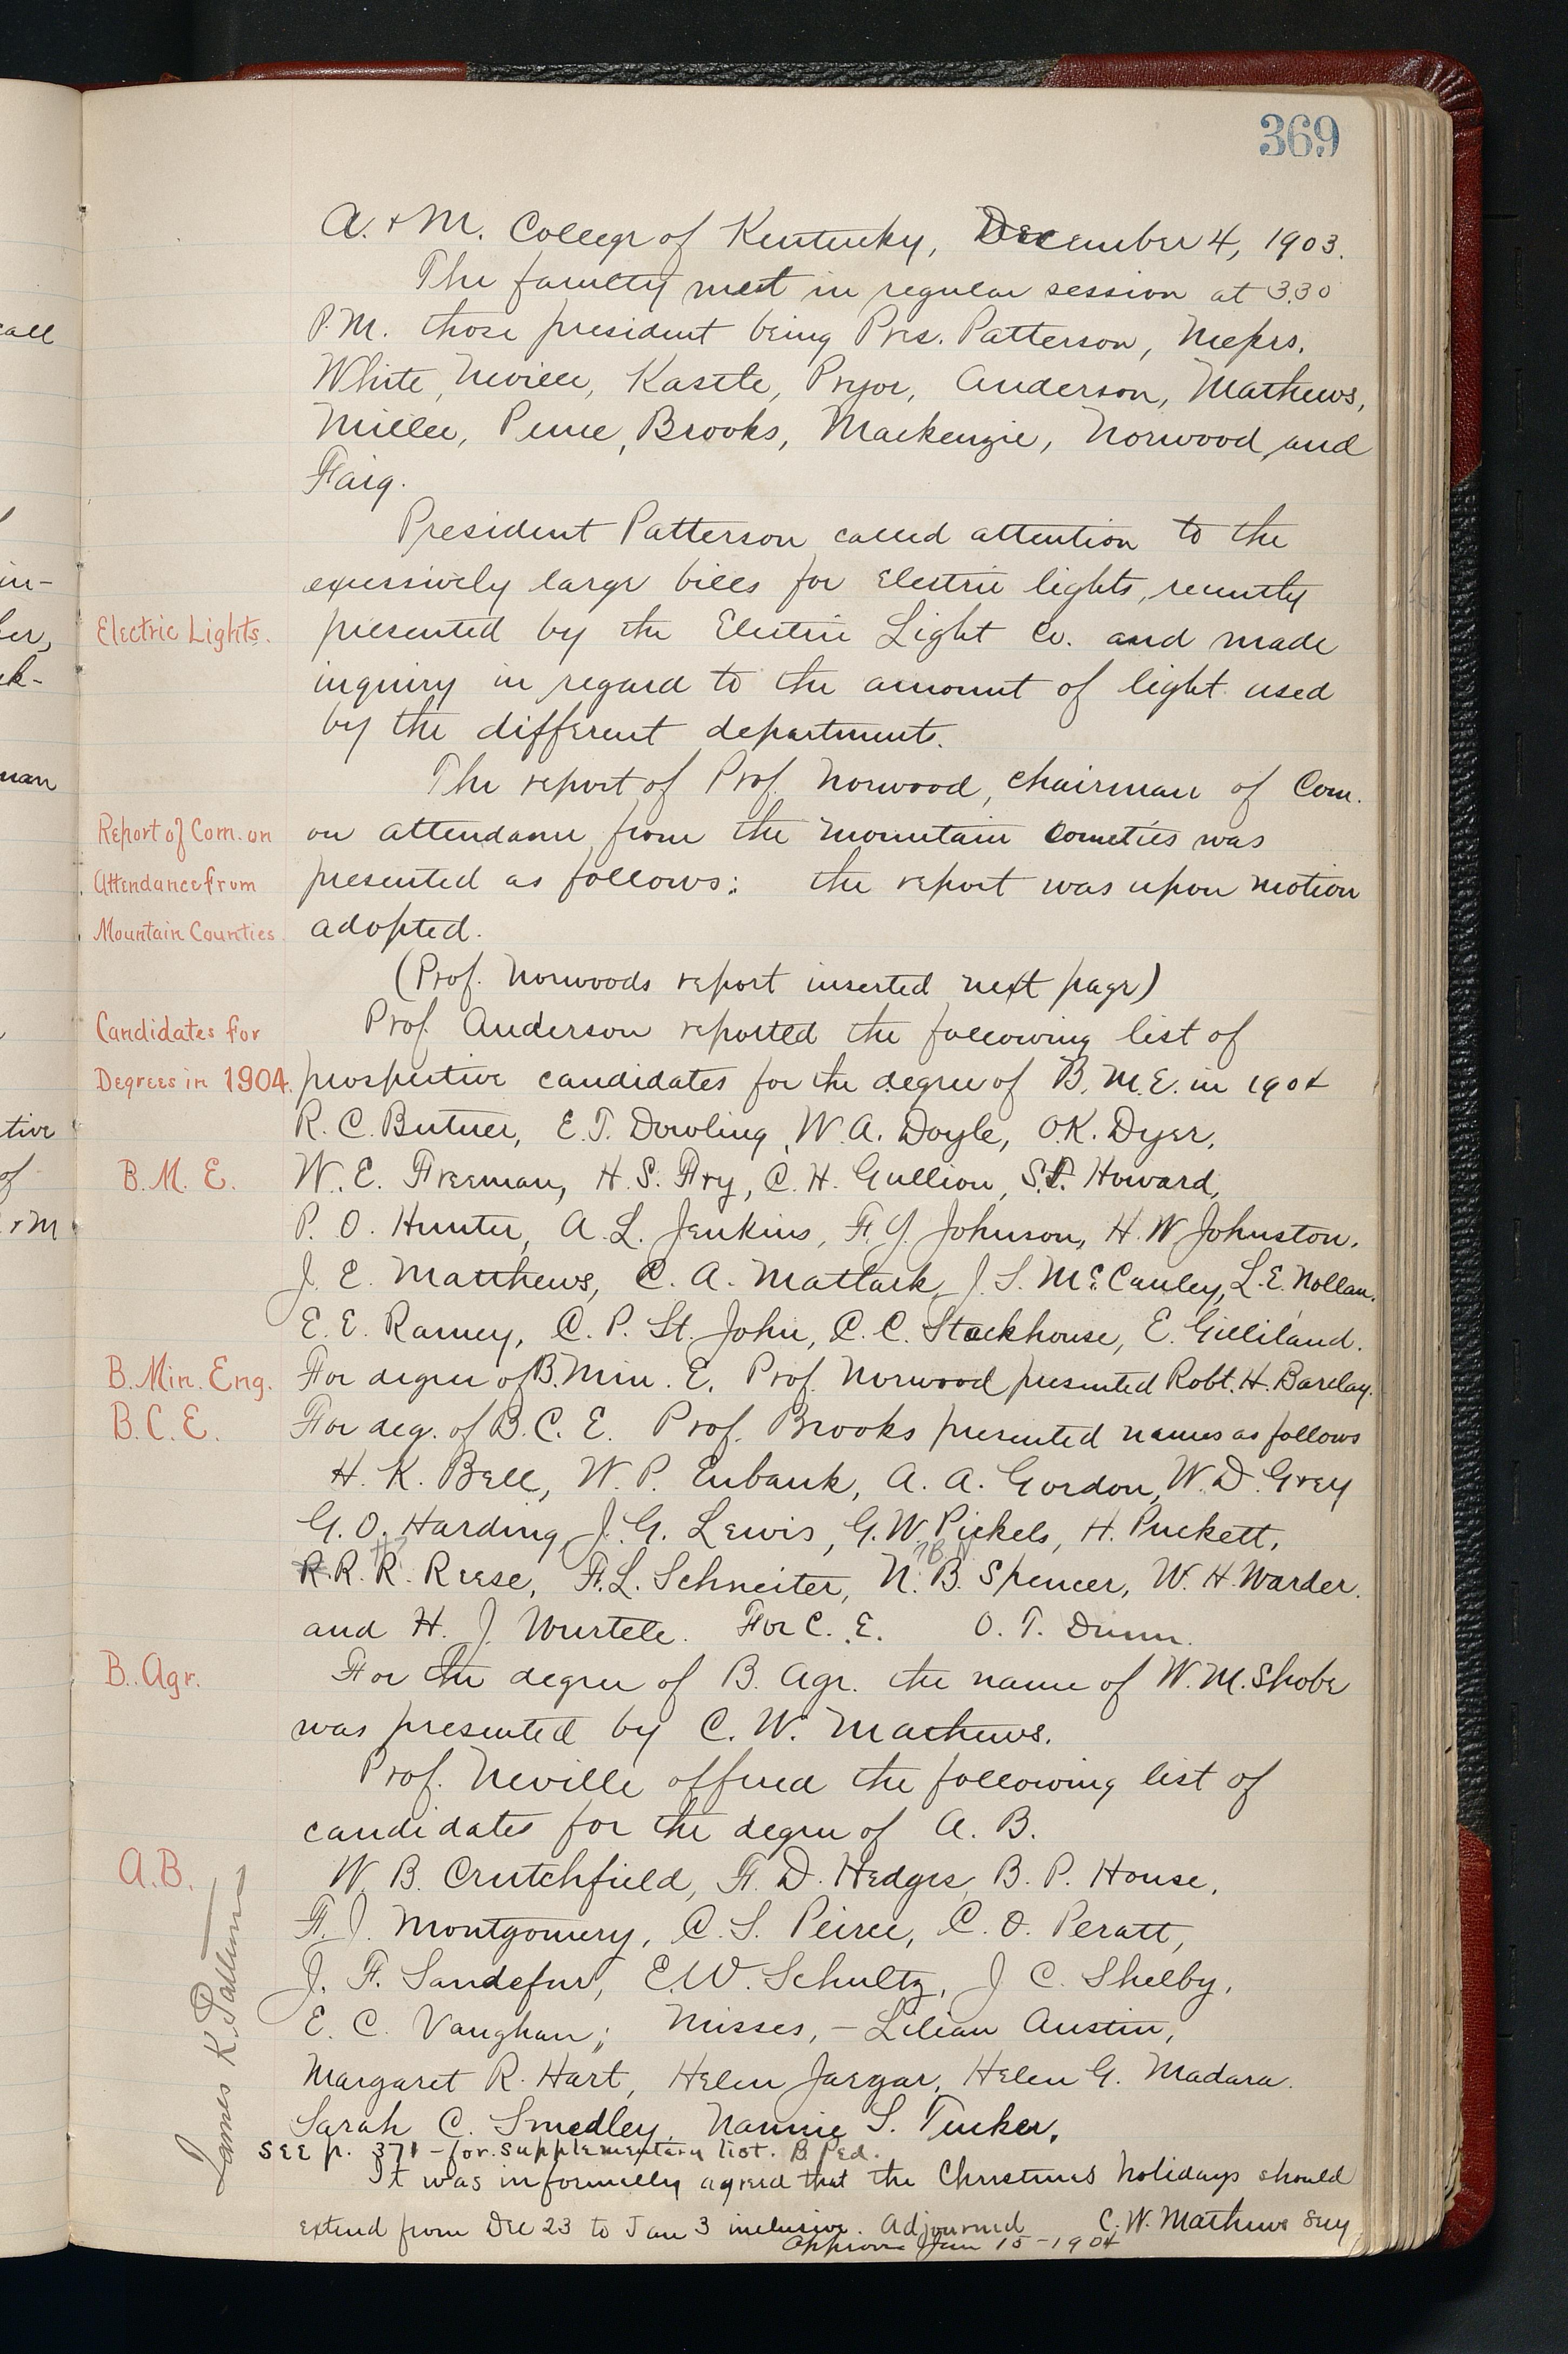 369
A. & M. College of Kentucky, December 4, 1903.
The faculty met in regular session at 3.30
P.M. those president being Pres. Patterson, Messrs.
White, Neville, Kastle, Pryor, Anderson, Mathews,
Miller, Pence, Brooks, Mackenzie, Norwood, and
Faig.
President Patterson called attention to the
excessively large bills for Electric lights, recently
Electric Lights. presented by the Electric Light Co. and made
inquiry in regard to the amount of light used
by the different departments.
The report of Prof. Norwood, chairman of Com.
Report of Com. on on attendance from the mountain counties was
Attendance from presented as follows: the report was upon motion
Mountain Counties. adopted.
(Prof. Norwoods report inserted next page)
Candidates for Prof. Anderson reported the following list of
Degrees in 1904. prospective candidates for the degree of B.M.E. in 1904
R. C. Butner, E. T. Dowling, W. A. Doyle, O.K. Dyer,
B. M. E. W. E. Freeman, H. S. Fry, C. H. Gullion, Howard,
P. O. Hunter, A. L. Jenkins, F. Y. Johnson, H. W. Johnston.
J. E. Matthews, C. A. Mattack, J. S. McCauley, L. E. Nollau.
E. E. Ramey, C. P. St. John, C. C. Stackhouse, E. Gilliland.
B. Min. Eng. For degree of B. Min. E. Prof. Norwood presented Robt. H. Barclay.
B. C. E. For deg. of B. C. E. Prof. Brooks presented names as follows
H. K. Bell, W. P. Eubank, A. A. Gordon, W. D. Grey
G. O. Harding, J. G. Lewis, G. W. Pickels, H. Puckett,
R. R. Reese, F. L. Schneiter, N. B. Spencer, W. H. Warder.
and H. J. Wurtele. For C. E. O. T. Dunn.
B. Agr. For the degree of B. Agr. the name of W. M. Shobe
was presented by C. W. Mathews.
Prof. Neville offered the following list of
candidates for the degree of A. B.
A. B. W. B. Crutchfield, F. D. Hedges, B. P. House,
F. J. Montgomery, C. S. Peirce, C. O. Peratt,
J. F. Sandefur, E. W. Schultz, J. C. Shelby,
E. C. Vaughan; Misses, - Lilian Austin,
Margaret R. Hart, Helen Jaegar, Helen G. Madara.
Sarah C. Smedley, Nannie S. Tucker.
See p. 371 - for supplementary list. B Ped.
It was informally agreed that the Christmas holidays should
extend from Dec 23 to Jan 3 inclusive. Adjourned C. W. Mathews Secy
Approve Jan 15 - 1904
James K. Patterson
call
in-
ler,
ek-
man
tive
of
& M